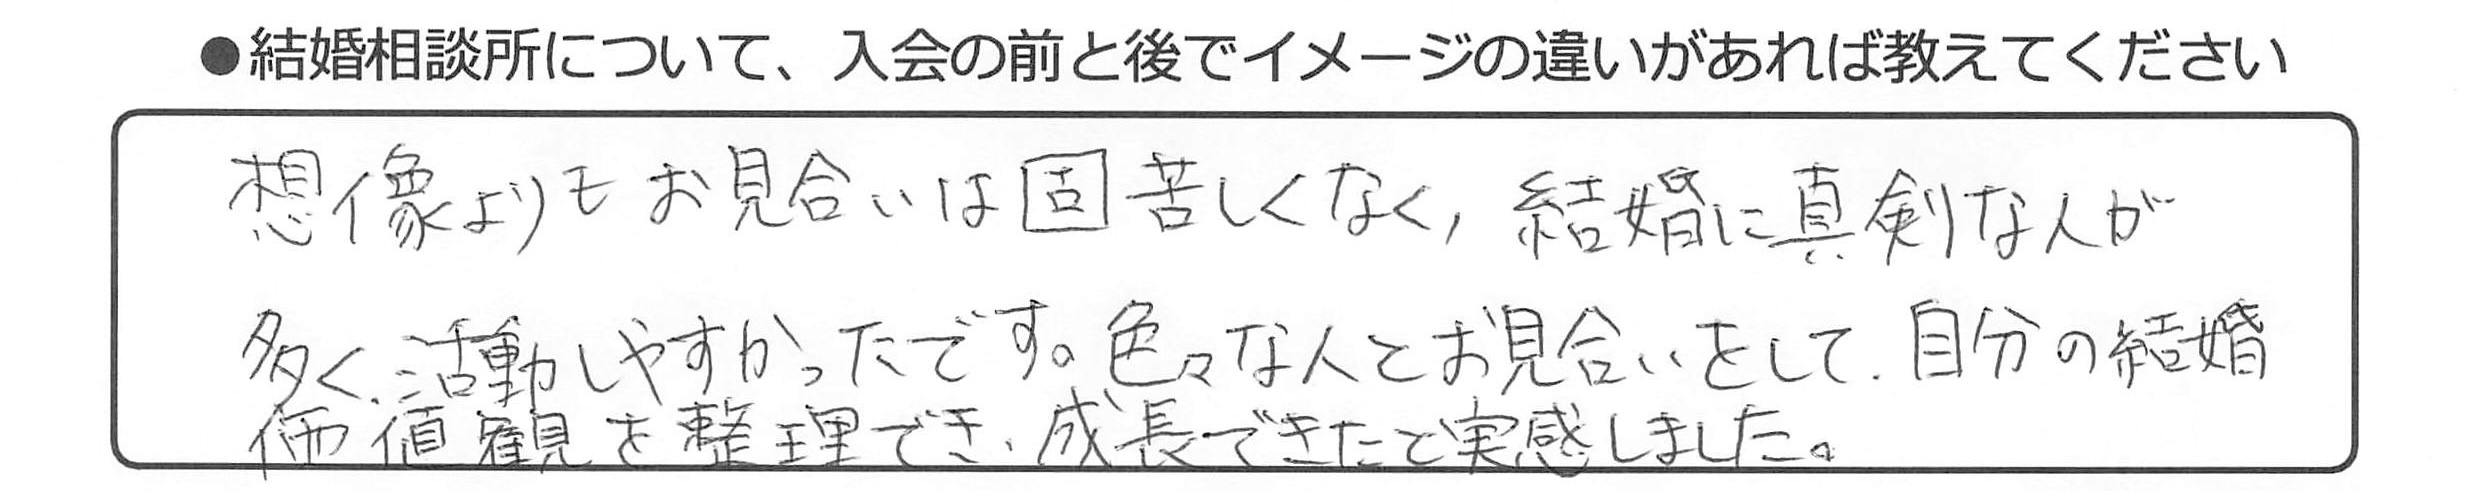 ●結婚相談所について、入会の前と後でイメージの違いがあれば教えてください
想像よりもお見合いは固苦しくなく、結婚に真剣な人が
多く、活動しやすかったです。色々な人とお見合いをして、自分の結婚
価値観を整理でき、成長できたと実感しました。